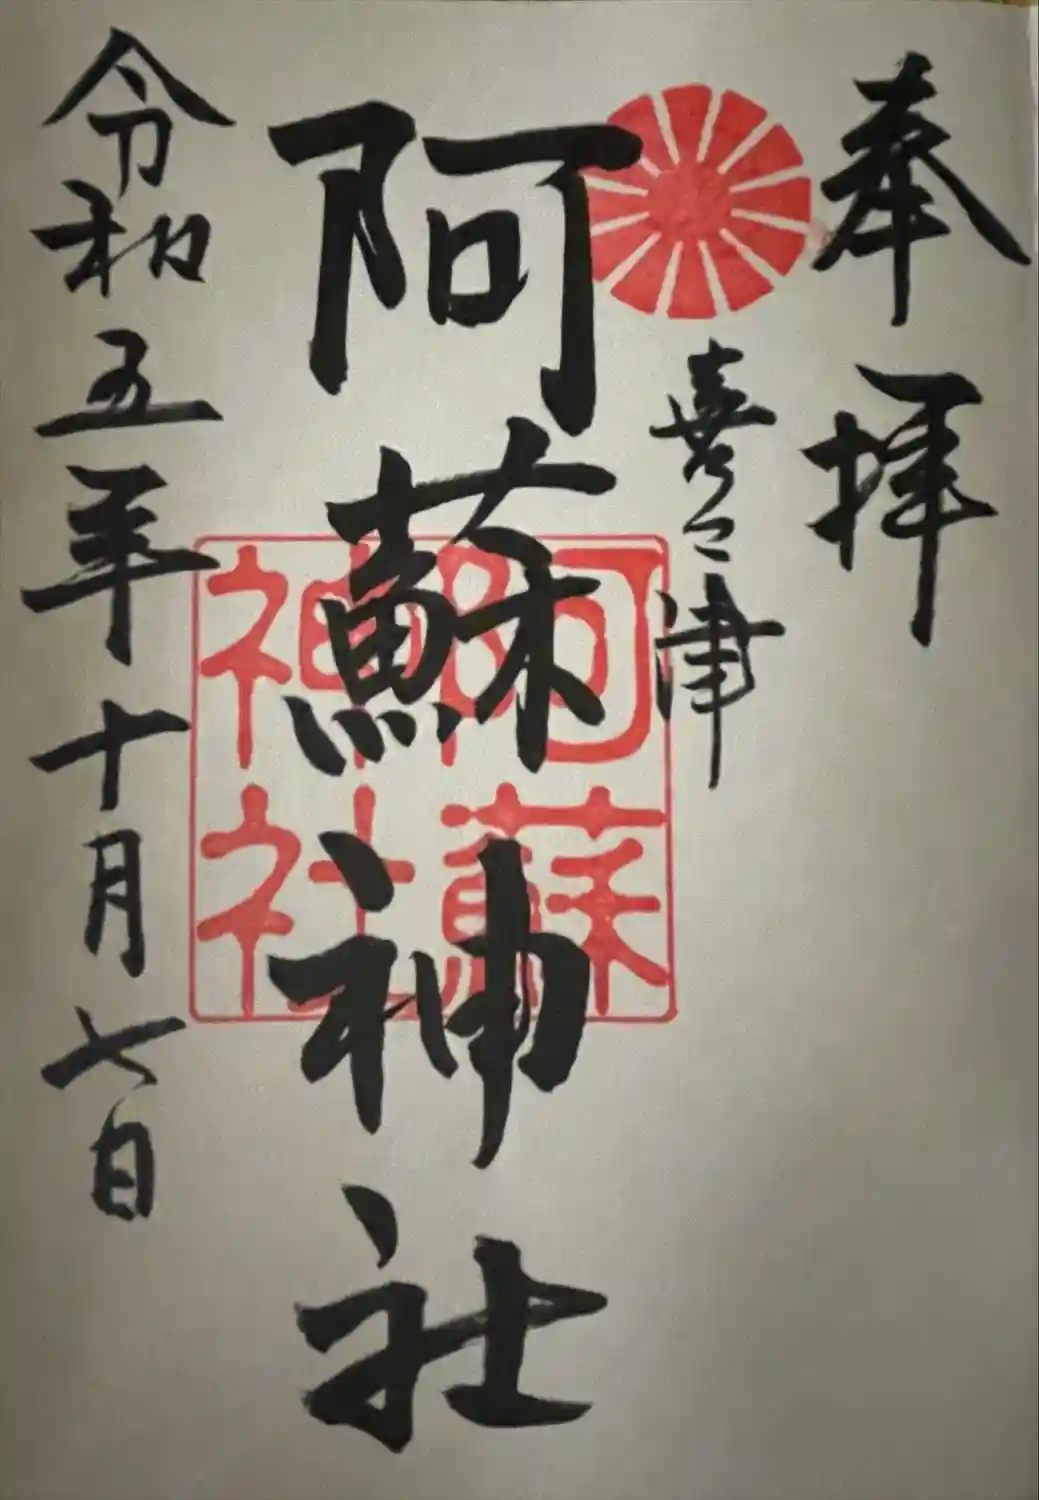 奉拝
喜々津
阿蘇神社
阿蘇神社
令和五年十月七日